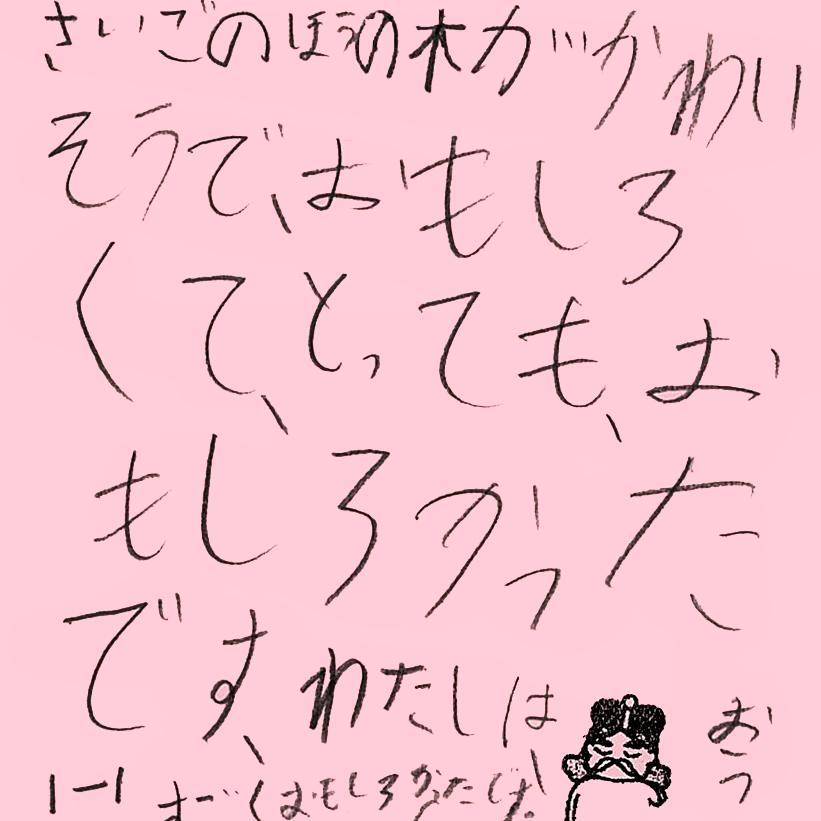 さいごのほうの木がかわい
そうで、おもしろ
くて、とっても、お
もしろかった
です、わたしは、おう
1-1 すごくおもしろかったです。